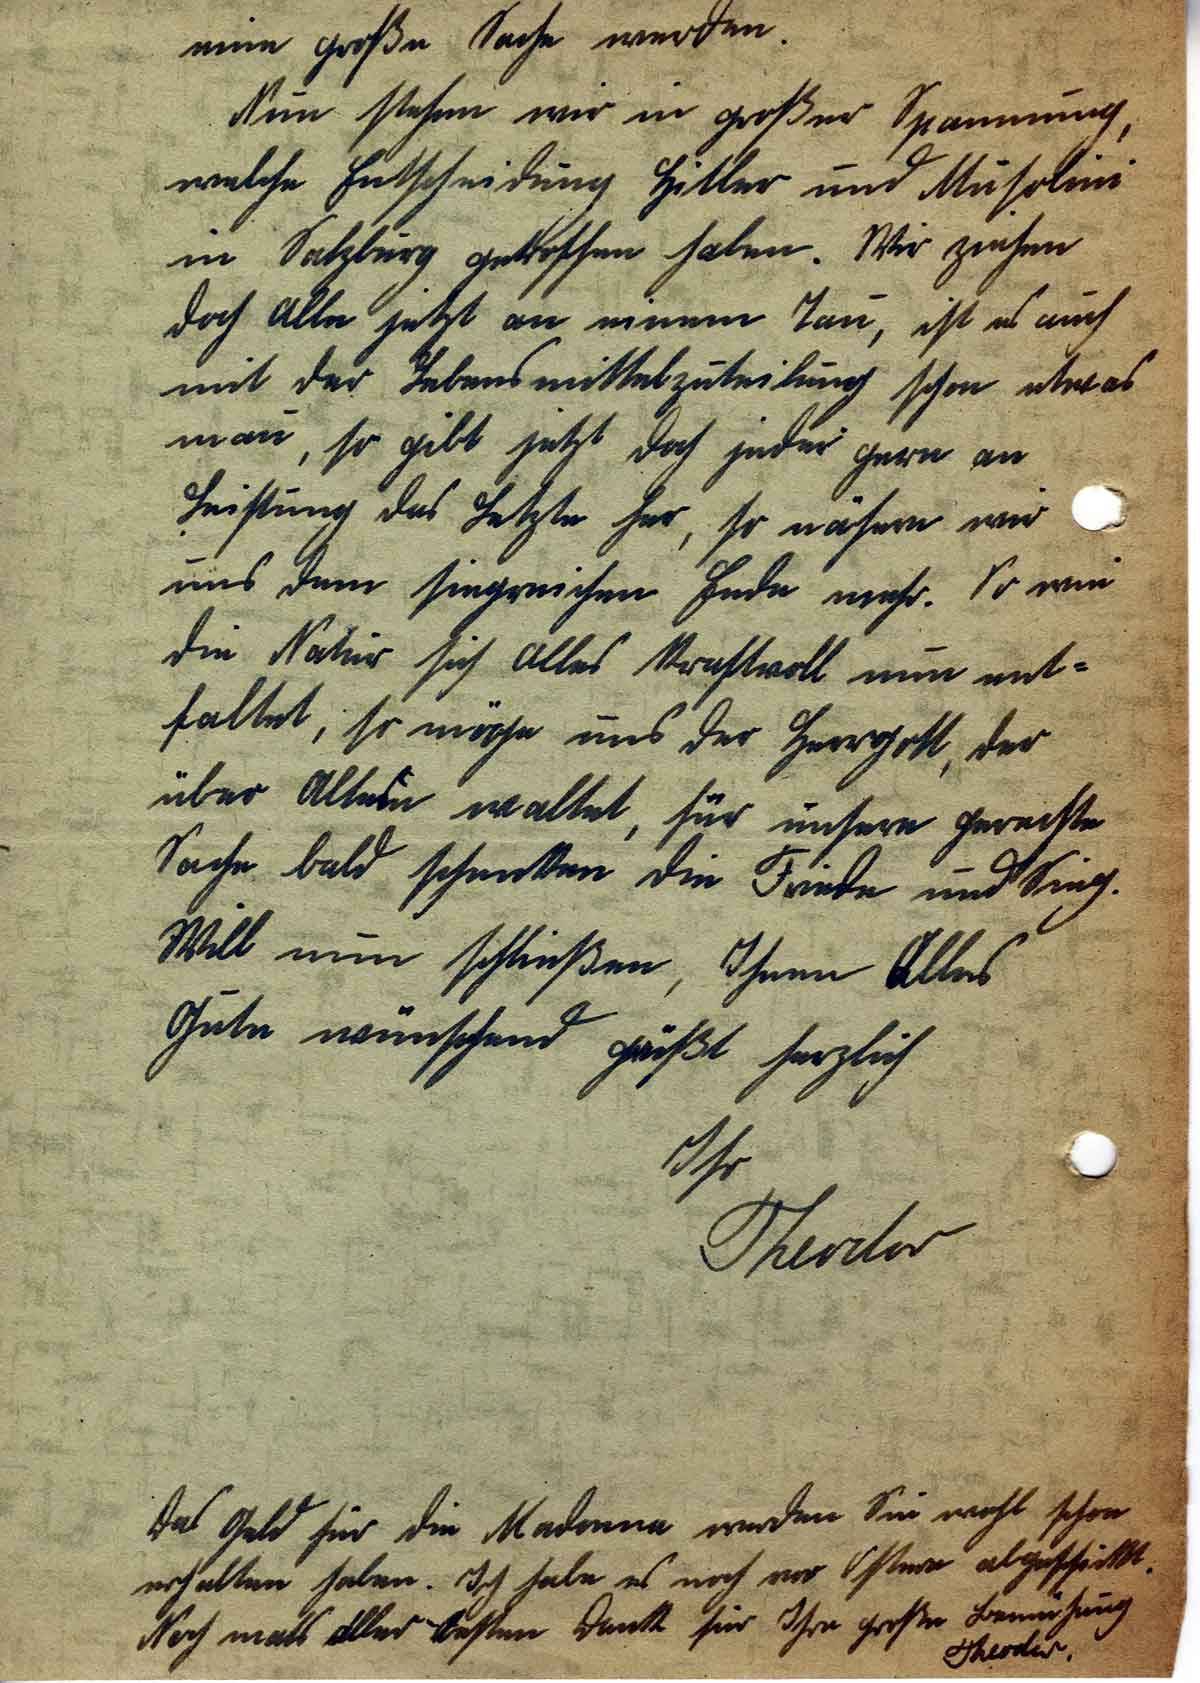 eine große Sache werden.
Nun stehen wir in großer Spannung,
welche Entscheidung Hitler und Musolini
in Salzburg getroffen haben. Wir ziehen
doch Alle jetzt an einem Tau, ist es auch
mit der Lebensmittelzuteilung schon etwas
mau, so gibt jetzt doch jeder gern an
Leistung das Letzte her, so nähern wir
uns dem siegreichen Ende mehr. So wie
die Natur sich Alles Kraftvoll nun ent=
faltet, so möge uns der Herrgott, der
über Allem waltet, für unsere gerechte
Sache bald schenken die Friede und Sieg.
Will nun schließen, Ihnen Alles
Gute wünschend grüßt herzlich
Ihr
Theodor
Das Geld für die Madonna werden Sie wohl schon
erhalten haben. Ich habe es noch vor Ostern abgeschickt.
Noch mals aller besten Dank für Ihre große Bemühung
Theodor.